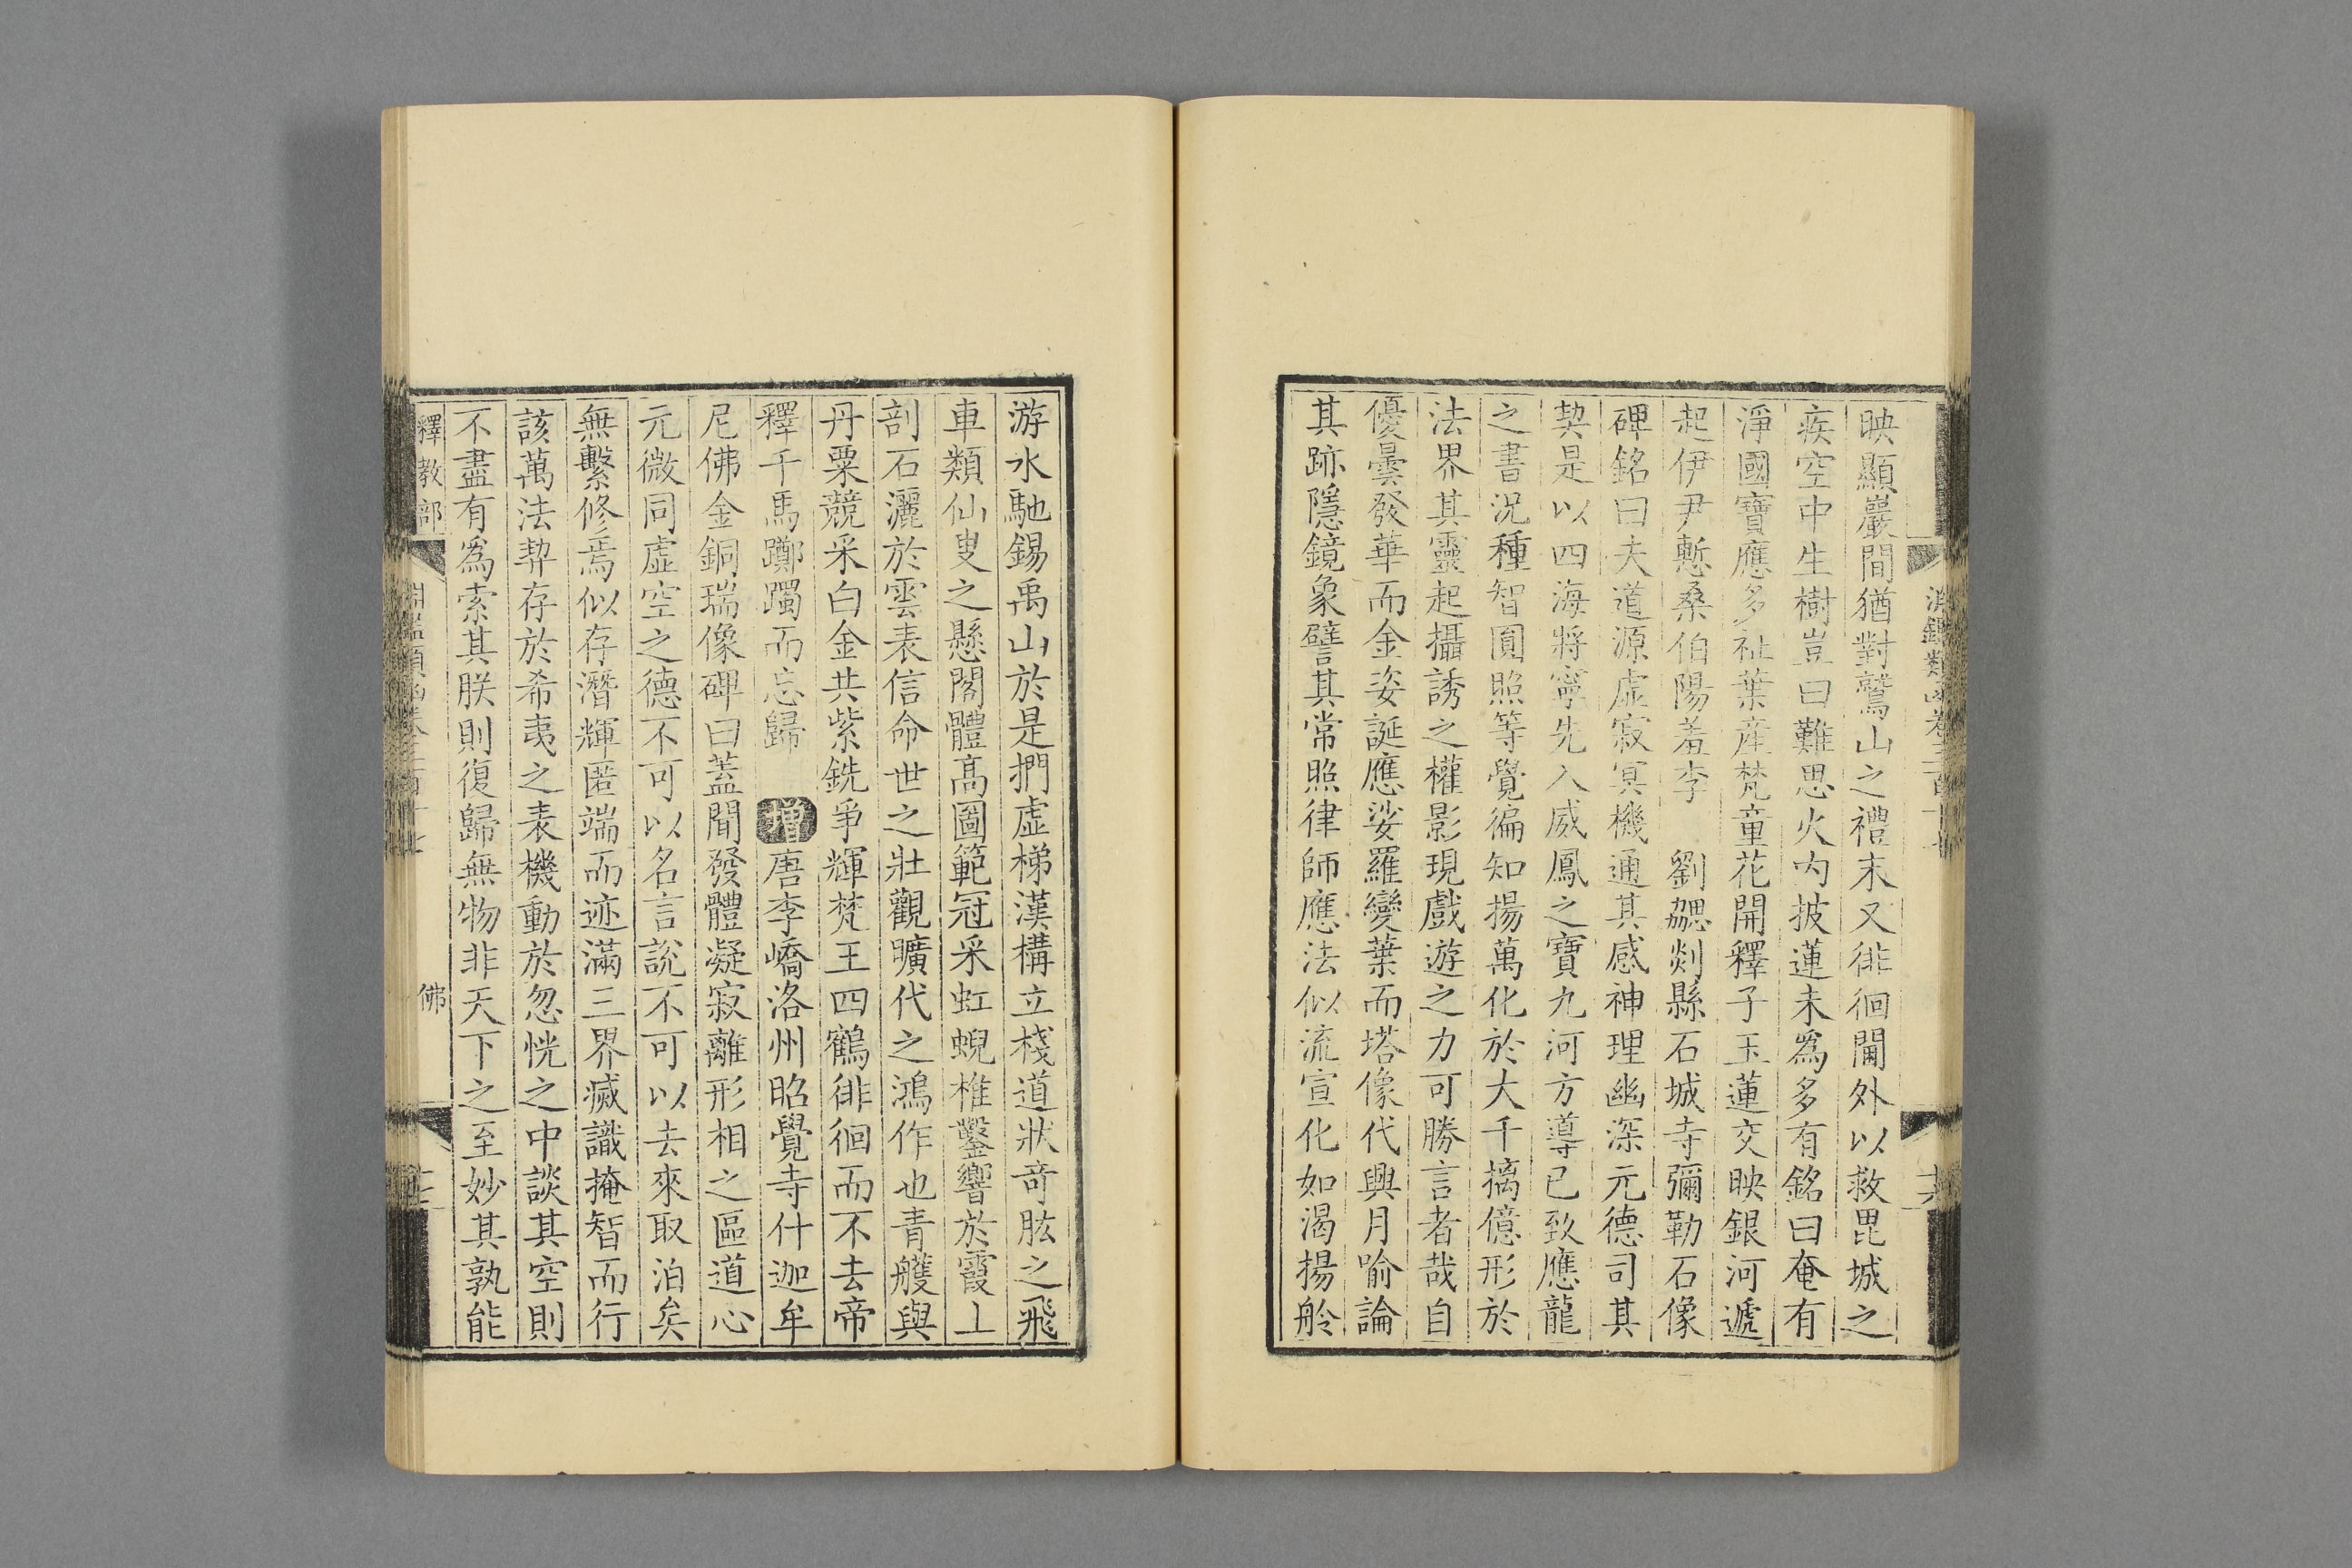 映顯巖間猶對鷲山之禮末又徘徊闉外以救毘城之
疾空中生樹豈曰難思火内披蓮未爲多有銘曰奄有
淨國寶應多祉葉産梵童花開釋子玉蓮交映銀河遞
起伊尹慙桑伯陽羞李 劉勰剡縣石城寺彌勒石像
碑銘曰夫道源虛寂冥機通其感神理幽深元德司其
契是以四海將寧先入威鳳之寶九河方導已致應龍
之書況種智圓照等覺徧知揚萬化於大千摛億形於
法界其靈起攝誘之權影現戲遊之力可勝言者哉自
優曇發華而金姿誕應娑羅變葉而塔像代興月喻論
其跡隱鏡象譬其常照律師應法似流宣化如渴揚舲
游水馳錫禹山於是捫虛梯漢構立棧道狀奇肱之飛
車類仙叟之懸閣體高圖範冠采虹蜺椎鑿響於霞上
剖石灑於雲表信命世之壯觀曠代之鴻作也青䨼與
丹粟競采白金共紫銑爭輝梵王四鶴徘徊而不去帝
釋千馬躑躅而忘歸 增唐李嶠洛州昭覺寺什迦牟
尼佛金銅瑞像碑曰蓋聞發體凝寂離形相之區道心
元微同虛空之德不可以名言說不可以去來取泊矣
無繫修焉似存潛輝匿端而迹滿三界藏識掩智而行
該萬法契存於希夷之表機動於忽恍之中談其空則
不盡有爲索其朕則復歸無物非天下之至妙其孰能
釋教部
佛